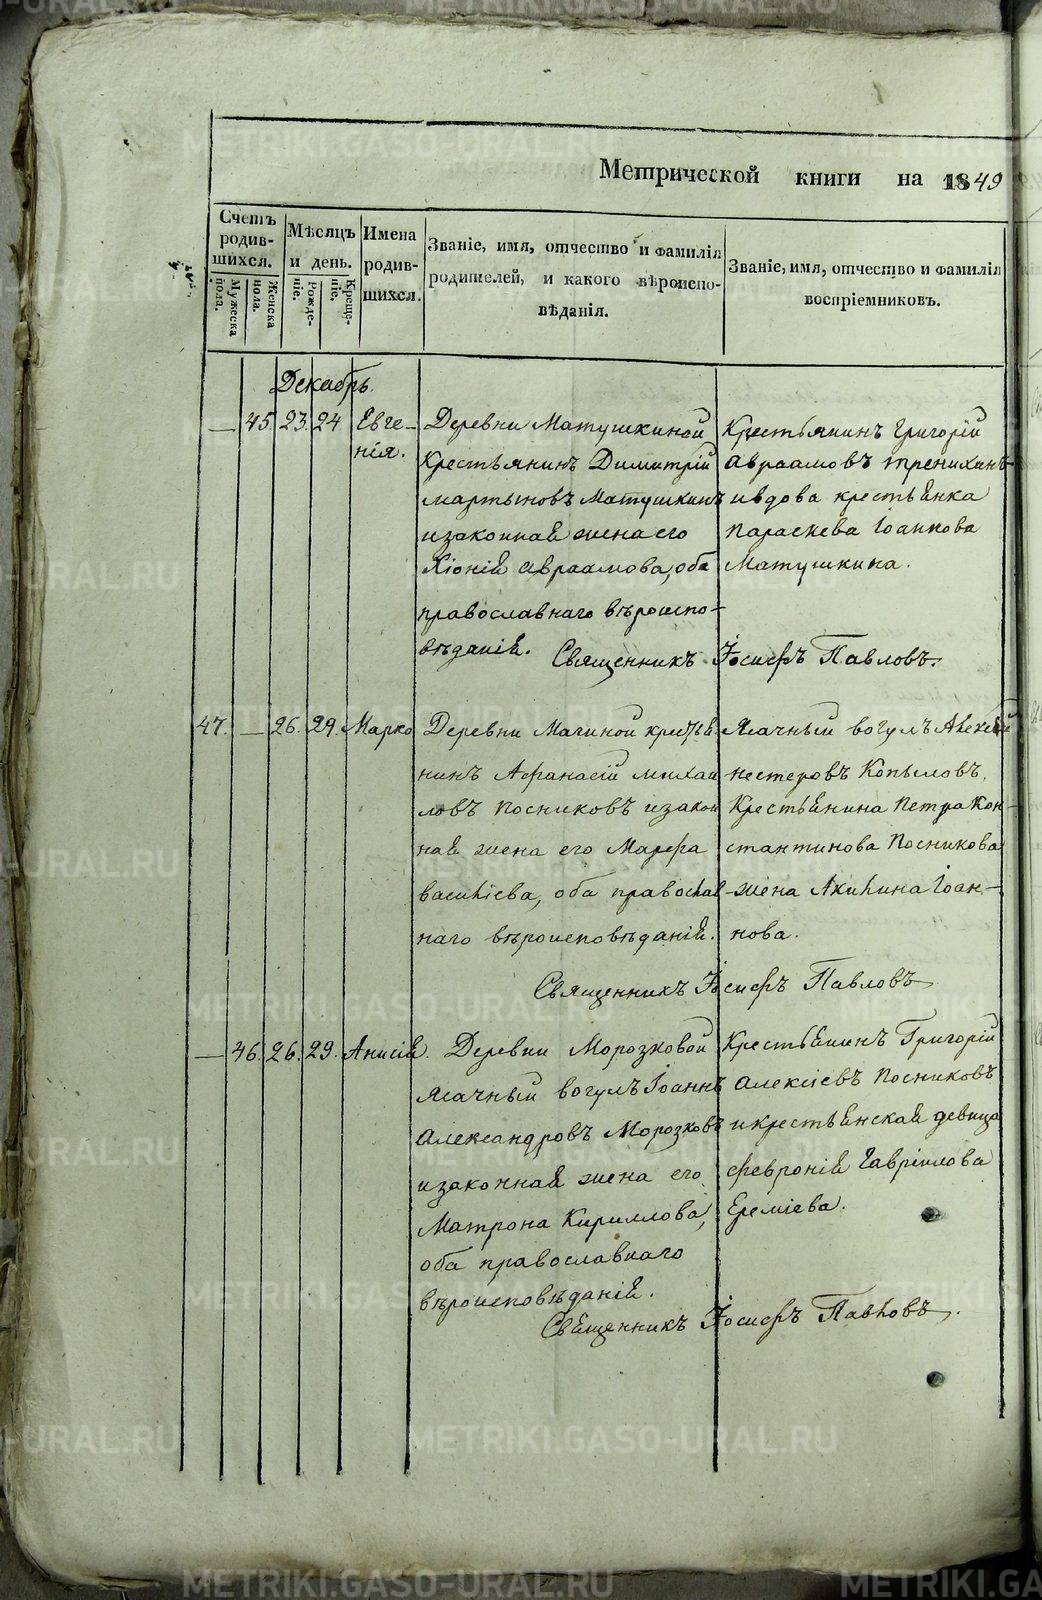 Метрической книги на 1849
Счетъ родив-шихся.
Мужеска пола.
Женска пола.
Мѣсяцъ и день.
Рожде-ніе.
Креще-ніе.
Имена родив-шихся.
Званіе, имя, отчество и фамилія
родителей, и какого вѣроиспо-
вѣданія.
Званіе, имя, отчество и фамилія
воспріемниковъ.
Декабрь.
— 45. 23. 24 Евге-
нія.
Деревни Матушкиной
Крестьянинъ Димитрій
Мартыновъ Матушкинъ
и законная жена его
Хіонія Авраамова, оба
православнаго вѣроиспо-
вѣданія.
Крестьянинъ Григорій
Авраамовъ Тренихинъ
и вдова крестьянка
Параскева Іоаннова
Матушкина.
Священникъ Іосифъ Павловъ.
47. — 26. 29. Марко
Деревни Магиной крестья
нинъ Афанасій Михаи
ловъ Посниковъ и закон
ная жена его Марфа
Василіева, оба православ
наго вѣроисповѣданія.
Ясачный вогулъ Алексѣй
Нестеровъ Копыловъ,
Крестьянина Петра Кон-
стантинова Посникова
жена Акилина Іоан-
нова.
Священникъ Іосифъ Павловъ
— 46. 26. 29. Анисія.
Деревни Морозковой
Ясачный вогулъ Іоаннъ
Александровъ Морозковъ
и законная жена его
Матрона Кириллова,
оба православнаго
вѣроисповѣданія.
Крестьянинъ Григорій
Алексіевъ Посниковъ
и крестьянская девица
Февронія Гавріилова
Ереміева.
Священникъ Іосифъ Павловъ.
METRIKI.GASO-URAL.RU